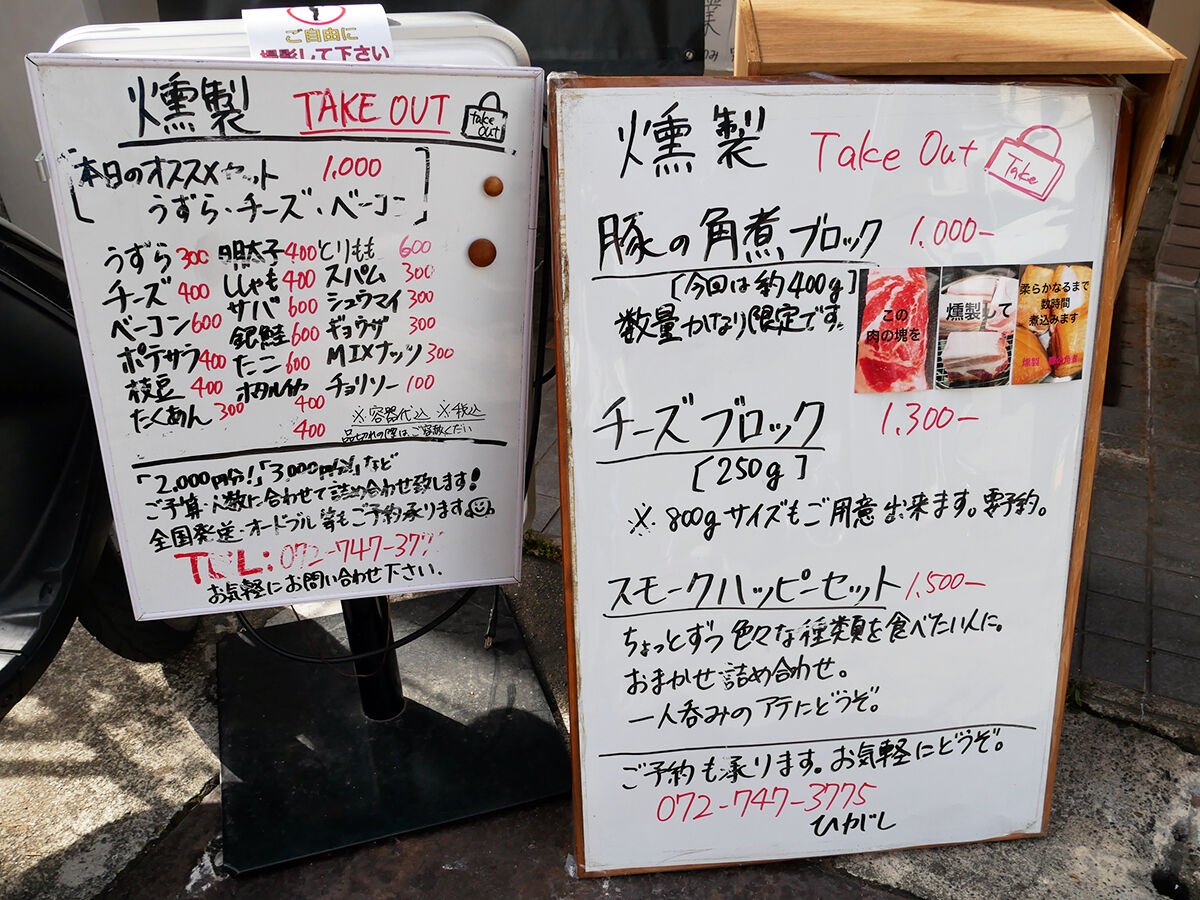 ご自由に
撮影して下さい
燻製 TAKE OUT take out
本日のオススメセット 1,000
うずら・チーズ・ベーコン
うずら 300 明太子 400 とりもも 600
チーズ 400 ししゃも 400 スパム 300
ベーコン 600 サバ 600 シュウマイ 300
ポテサラ 400 銀鮭 600 ギョウザ 300
枝豆 400 たこ 600 MIXナッツ 300
たくあん 300 ホタルイカ 400 チョリソー 100
400
※容器代込 ※税込
品切れの際はご容赦ください
「2,000円分!」「3,000円分!」など
ご予算・人数に合わせて詰め合わせ致します!
全国発送・オードブル等もご予約承ります。
TEL:072-747-377
お気軽にお問い合わせ下さい.
燻製 Take Out Take
豚の角煮ブロック 1,000-
[今回は約400g]
数量かなり限定です。
この
肉の塊を
燻製して
柔らかなるまで
数時間
煮込みます
チーズブロック 1,300-
[250g]
※800gサイズもご用意出来ます。要予約。
スモークハッピーセット 1,500-
ちょっとずつ色々な種類を食べたい人に。
おまかせ詰め合わせ。
一人呑みのアテにどうぞ。
ご予約も承ります。お気軽にどうぞ。
072-747-3775
ひがし